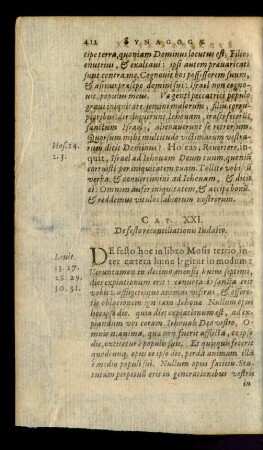 412 SYNAGOGÆ
cipe terra, quoniam Dominus locutus est. Filios
enutrivi, & exaltavi: ipsi autem prævaricati
sunt contra me. Cognovit bos possessorem suum,
& asinus præsepe domini sui: Israel non cog-
novit, populus meus. Væ genti peccatrici, populo
gravi iniquitate, semini malorum, filiis
dereliquerunt Iehovam,
sanctum Israel, alienaverunt se retrorsum.
Quorsum mihi multitudo victimarum vestra-
rum dicit Dominus? Hoseas, Revertere, in-
quit, Israel ad Iehovam Deum tuum, quoniam
corruisti per iniquitatem tuam. Tollite vobiscum
verba, & convertimini ad Iehovam, & dicite
ei: Omnem aufer iniquitatem, & accipe bonum,
& reddemus vitulos labiorum nostrorum.
Hos. 14.
2. 3.
CAP. XXI.
De festo reconciliationis Iudaico.
DE festo hoc in libro Mosis tertio, in-
ter cætera hunc legitur in modum:
Veruntamen in decimo mensis huius septimi,
dies expiationum erit: convocatio sancta erit
vobis: & affligetis animas vestras, & offere-
tis oblationem Iehovæ. Nullum opus
ipso die. quia dies expiationum est, ad ex-
piandum vos coram Iehovah Deo vestro. Om-
nis n. anima, quæ non fuerit afflicta, eo ipso
die, excidetur è populo suo. Et quisquis fecerit
quodcunque, opus eo ipso die, perdā animam illam
è medio populi sui. Nullum opus facietis. Sta-
tutum perpetuum erit in generationibus vestris
in
Levit.
23. 27.
28. 29.
30. 31.